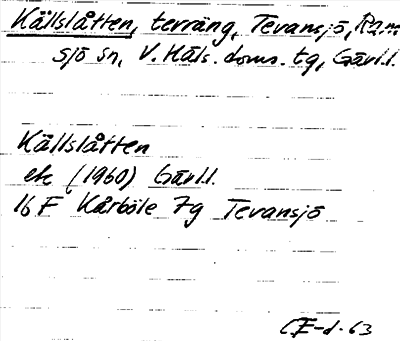 Källslåtten, terräng, Tevansjö, Ram
sjö sn, V. Häls. doms. tg, Gävl.l.
Källslåtten
ek (1960) Gävl.l.
16 F Kårböle 7g Tevansjö
CF-d. 63